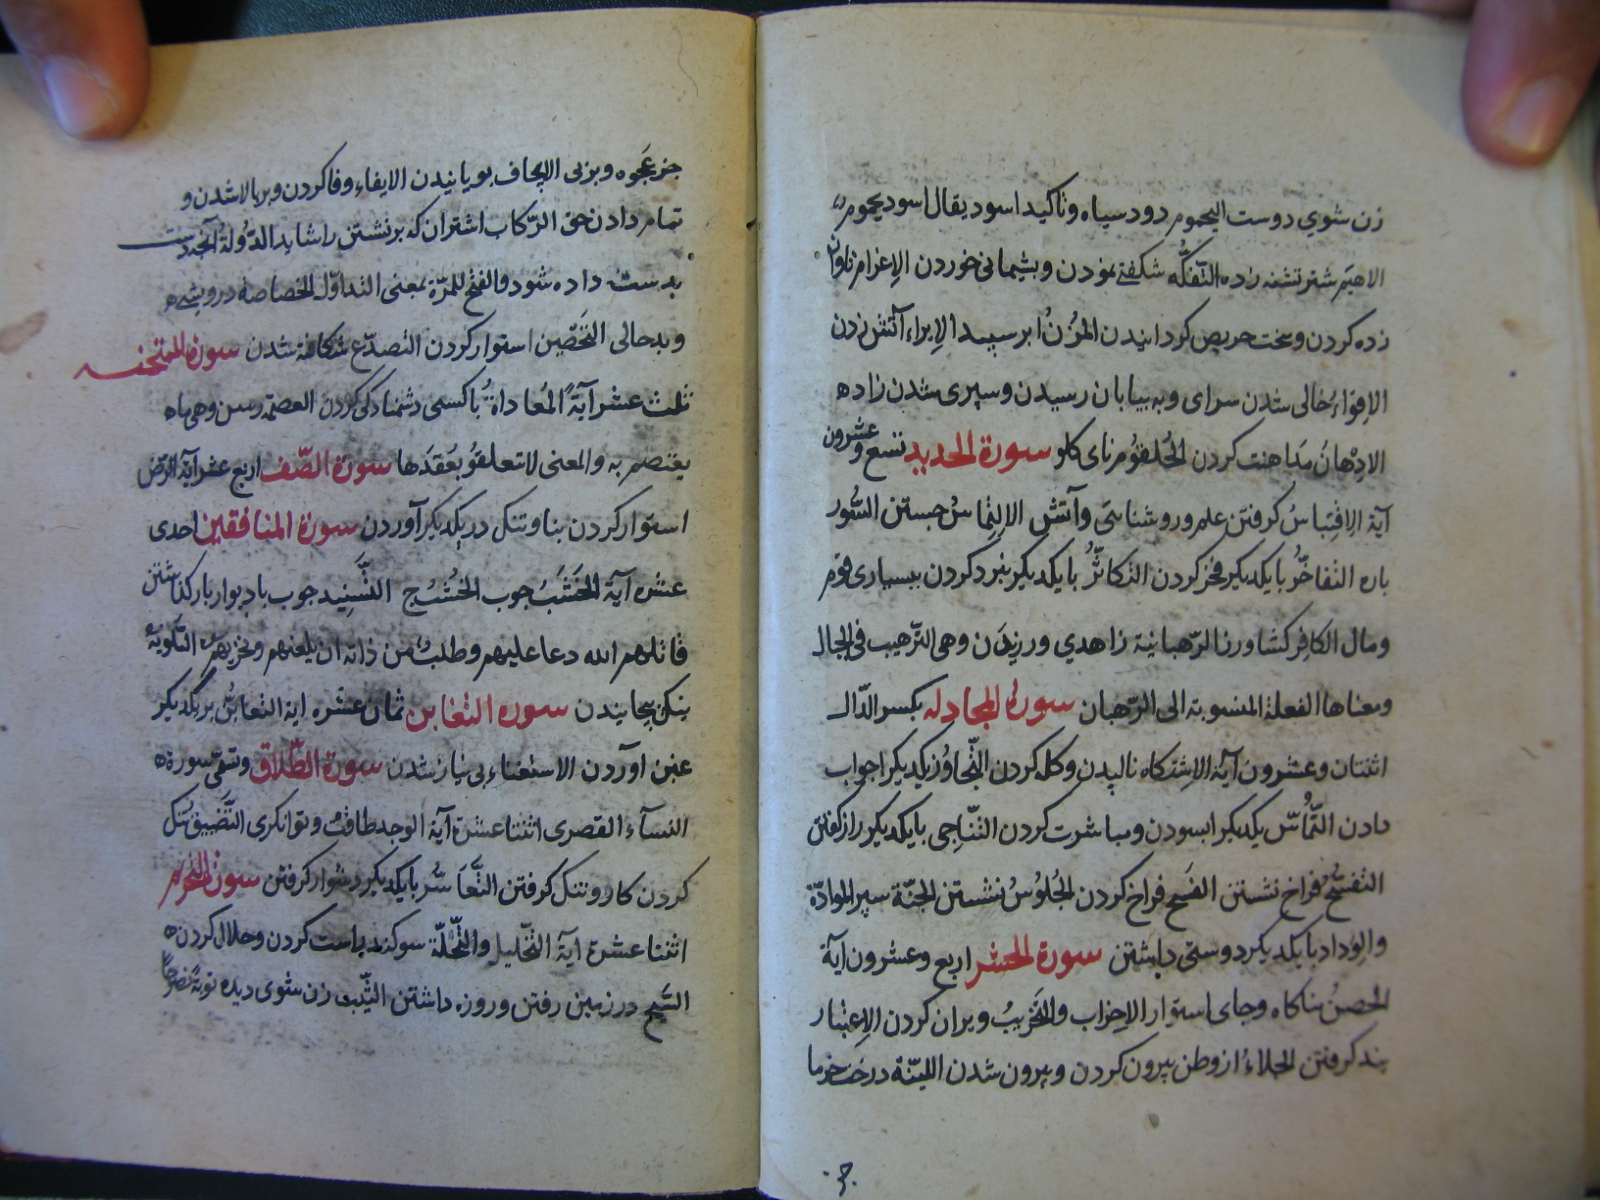 زن شوي دوست اليحموم دود سياه وتاكيد اسود يقال اسود يحموم
الاهيم شتر تشنه زده التّفكّه شكفتى نمودن وپشيمانى خوردن الإغرام تاوان
زده كردن وسخت حريص كردانيدن المُزْنُ ابر سپيد الإيراء آتش زدن
الإقواءُ خالى شدن سراى وبه بيابان رسيدن وسپرى شدن زاده
الادْهانُ مداهنت كردن الحُلقوُم ناى كلو سورة الحديد تسع وعشرون
آية الاِقتِباسُ كرفتن علم وروشنائى وآتش الاِلتِماسُ جستن السُّور
باره التفاخُر بايكديكر فخر كردن التكاثُرُ بايكديكر نبرد كردن ببسيارى قوم
ومال الكافر كشاورز الرّهبانية زاهدي ورزيدن وهى الترهيب فى الجبال
ومعناها الفعلة المنسوبة الى الرّهبان سورة المجادله بكسر الدّال
اثنتان وعشرون آية الاشتكاء ناليدن وكله كردن التّحاوُر يكديكر اجواب
دادن التَّماسّ يكديكر ابسودن ومباشرت كردن التناجى بايكديكر راز كفتن
التفسّح فراخ نشستن الفسح فراخ كردن الجُلوُسُ نشستن الجنّة سپر الموادّة
والوداد بايكديكر دوستى داشتن سورة الحشر اربع وعشرون آية
الحصن پناكاه وجاى استوار الاخراب والتخريبُ ويران كردن الاِعتبار
پند كرفتن الجلاءُ از وطن بيرون كردن وبيرون شدن اللينة درخت خرما
جز عَجوه وبزبى الايجاف پويانيدن الايفاء وفا كردن وبربالا شدن و
تمام دادن حق الرّكاب اشتران كه برنشستن را شايد الدُولةُ آنچه دست
بدست داده شود والفتح للمرّة بمعنى التداوُل الخصاصة درويشى
وبدحالى التحصّين استوار كردن التصدّع شكافته شدن سورة الممتحنه
ثلث عشر آيةً المُعاداةُ باكسى دشمنادكى كردن العصمة رسن وهى ماه
يعتصم به والمعنى لا تتعلقوُ بعَقدَها سورة الصّف اربع عشر آية الرّصّ
استوار كردن بنا وتنك دريكديكر آوردن سورة المنافقين احدى
عشره آية الخشَبُ چوب الخُشُبُ ج التّسنيد چوب باديوار باز كذاشتن
قاتلهم الله دعا عليهم وطلبٌ من ذاته ان يلعنهم ويخزيهم التلوية
نيك پيچانيدن سوره التغابن ثمان عشره اية التغابُن بريكديكر
غبن آوردن الاستغناء بى نياز شدن سورة الطّلاق وتسمّى سورة
النسآء القصرى اثنتا عشرة آية الوجد طاقت وتوانكرى التّضييق تنك
كردن كار وتنك كرفتن التّعاسُر بايكديكر دشوار كرفتن سورة التحرم
اثنتا عشرة آية التّحليل والتّحلّة سوكند راست كردن وحلال كردن
السّيح در زمين رفتن وروزه داشتن الثّيّب زن شوى ديده توبةً نصوحًا